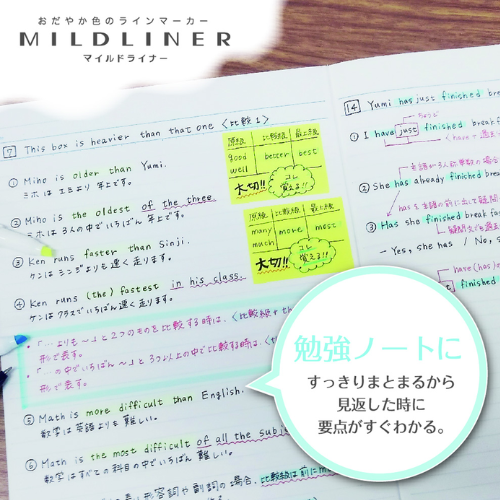 おだやか色のラインマーカー
MILDLINER
マイルドライナー
7 This box is heavier than that one 〈比較1〉
① Miho is older than Yumi.
ミホはユミより年上です。
② Miho is the oldest of the three.
ミホは3人の中でいちばん年上です。
③ Ken runs faster than Sinji.
ケンはシンジよりも速く走ります。
④ Ken runs (the) fastest in his class.
ケンはクラスでいちばん速く走ります。
・「…よりも〜」と2つのものを比較する時は、〈比較級+th
形で表す。
・「…の中でいちばん〜」と3つ以上の中で比較する時は、〈t
形で表す。
⑤ Math is more difficult than English.
数学は英語よりも難しい。
⑥ Math is the most difficult of all the subje
数学はすべての科目の中でいちばん難しい。
形容詞や副詞の場合、比較級は前にmo
原級 比較級 最上級
good better best
well
大切!! コレ覚える!!
原級 比較級 最上級
many more most
much
大切!! コレ覚える!!
14 Yumi has just finished brea
① I have just finished breakf
② She has already finished brea
③ Has she finished break
- Yes, she has / No, s
finished
have(has)
勉強ノートに
すっきりまとまるから
見返した時に
要点がすぐわかる。